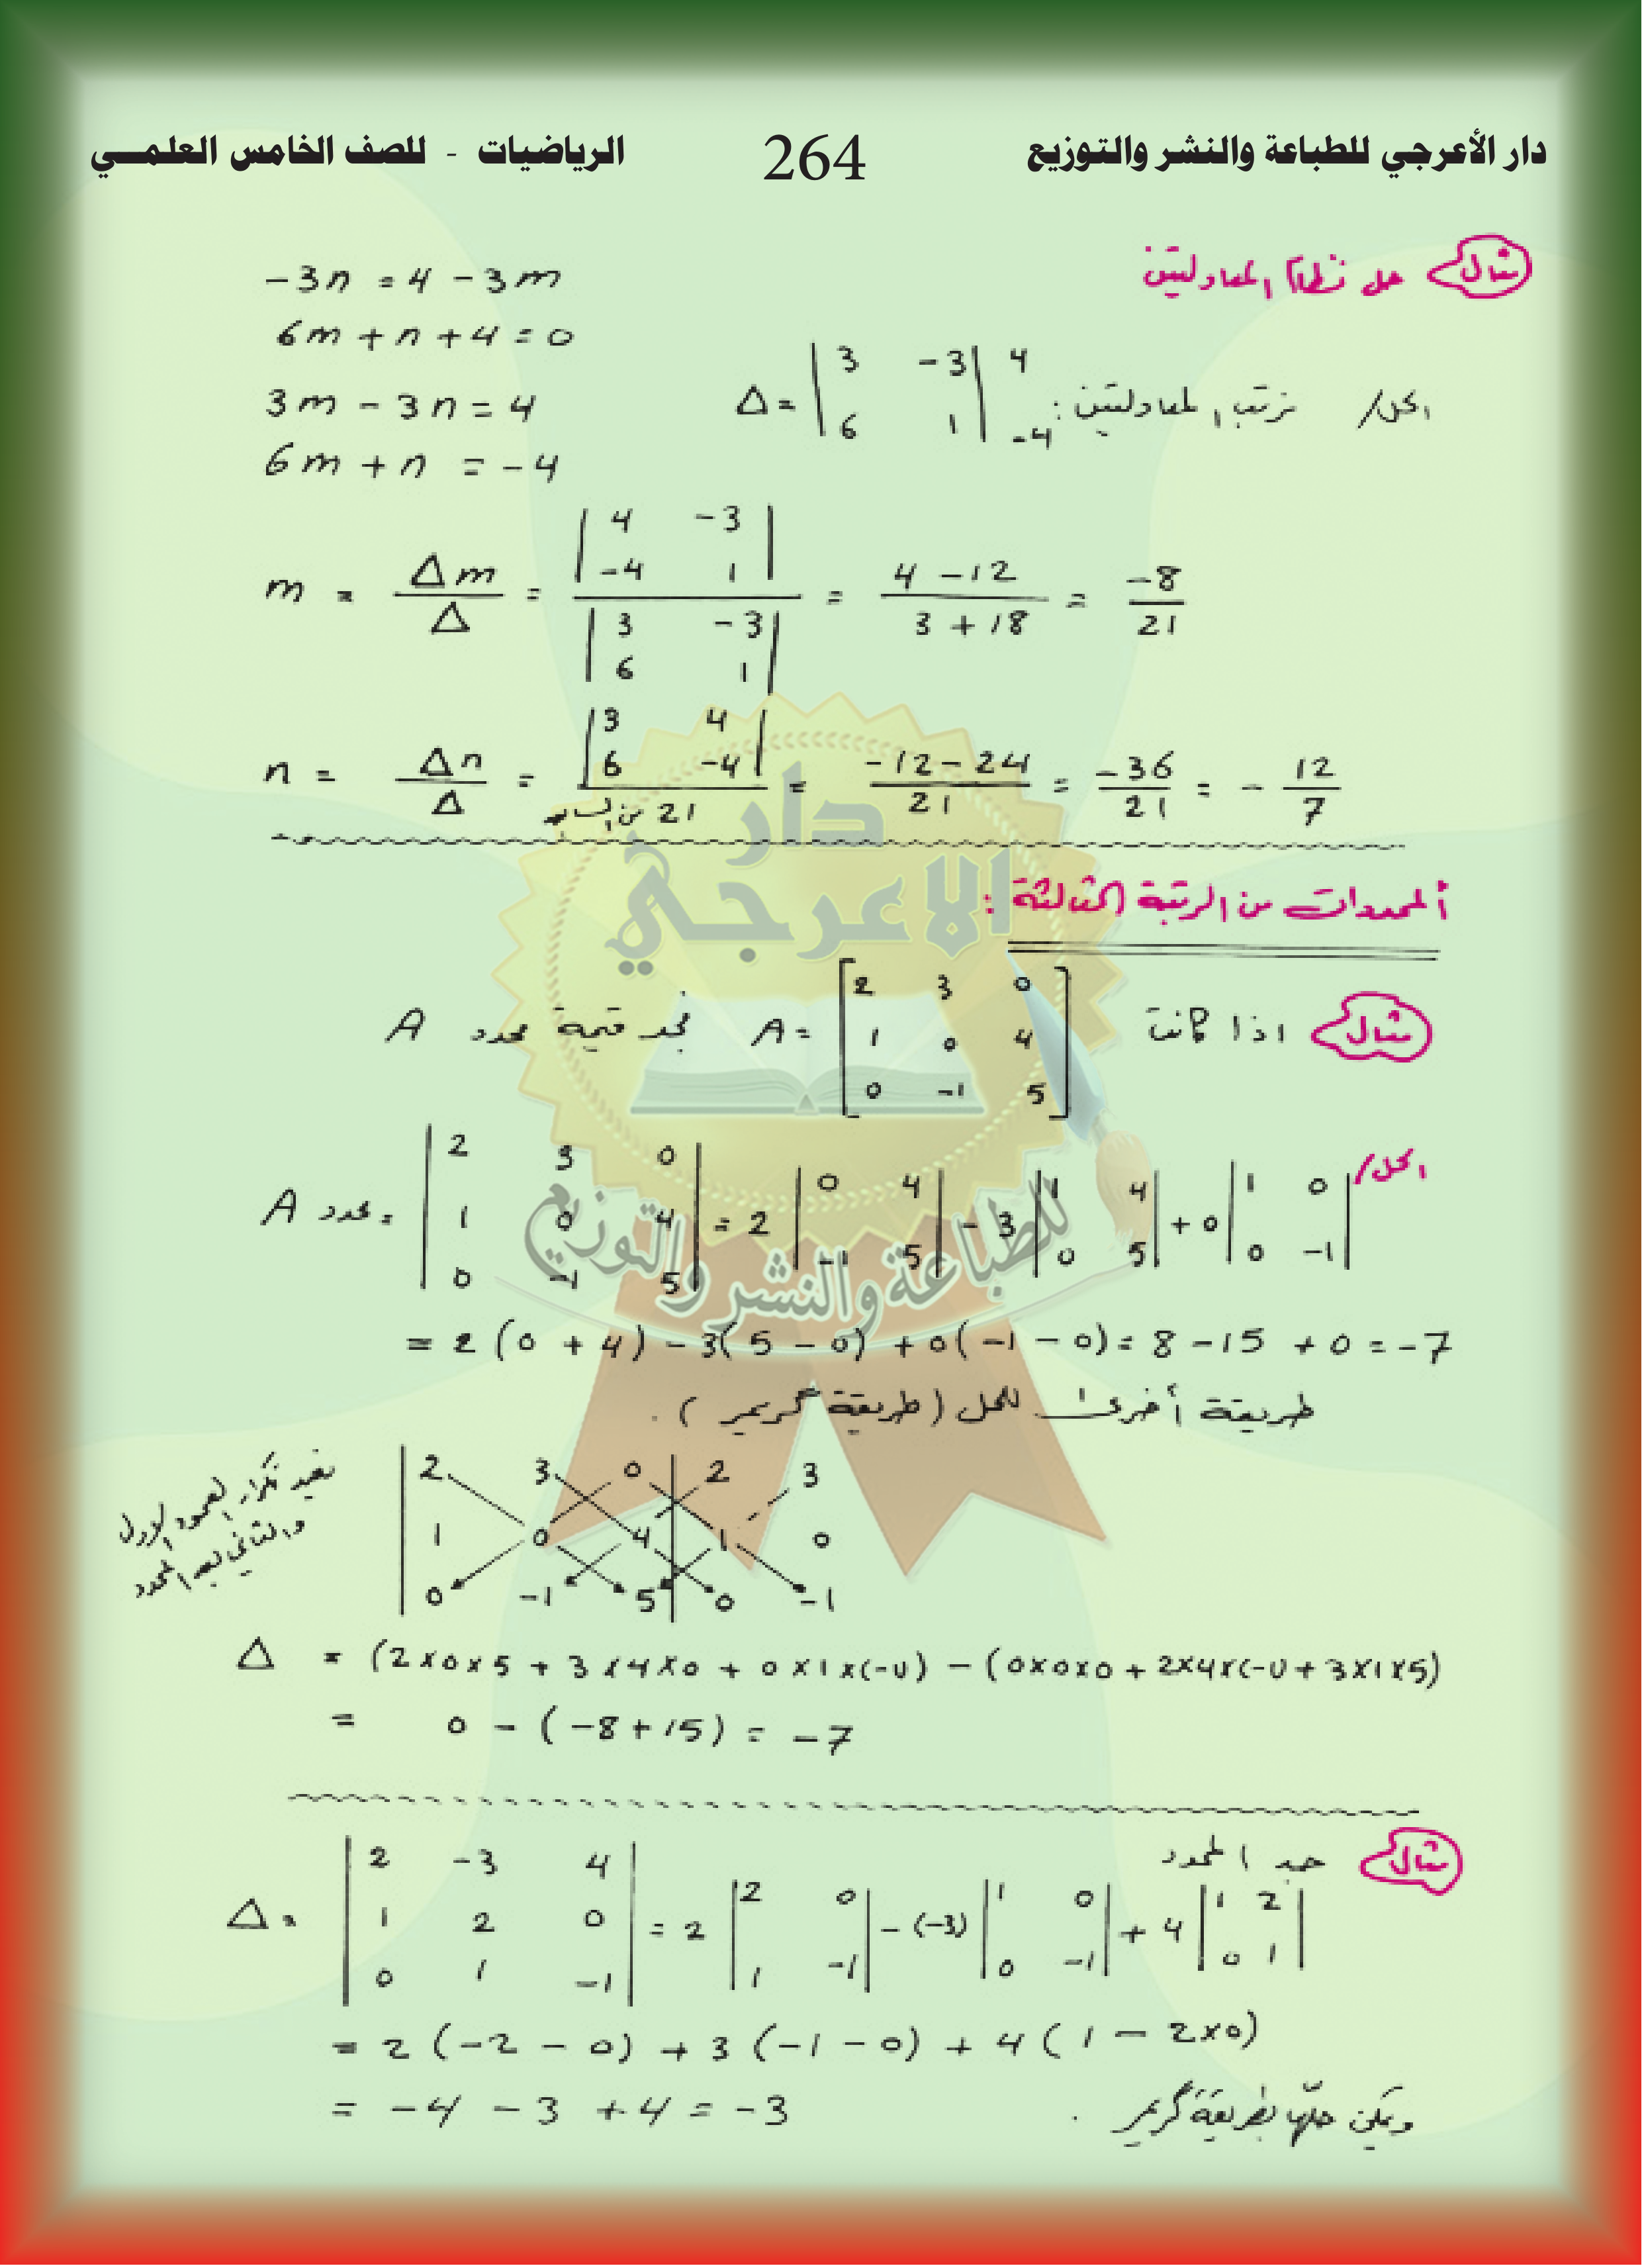 دار الأعرجي للطباعة والنشر والتوزيع 264 الرياضيات - للصف الخامس العلمي
مثال حل نظام المعادلتين
-3n = 4 - 3m
6m + n + 4 = 0
الحل/ نرتب المعادلتين:
3m - 3n = 4
6m + n = -4
Δ = | 3 -3 | 4
| 6 1 | -4
m = Δm/Δ = | 4 -3 ; -4 1 | / | 3 -3 ; 6 1 | = (4 - 12)/(3 + 18) = -8/21
n = Δn/Δ = | 3 4 ; 6 -4 | / 21 من السابق = (-12 - 24)/21 = -36/21 = - 12/7
المحددات من الرتبة الثالثة:
مثال اذا كانت A = [ 2 3 0 ; 1 0 4 ; 0 -1 5 ] نجد قيمة محدد A
الحل/
محدد A = | 2 3 0 ; 1 0 4 ; 0 -1 5 | = 2 | 0 4 ; -1 5 | - 3 | 1 4 ; 0 5 | + 0 | 1 0 ; 0 -1 |
= 2(0 + 4) - 3(5 - 0) + 0(-1 - 0) = 8 - 15 + 0 = -7
طريقة أخرى للحل (طريقة كريمر).
نعيد تكرار العمود الاول
والثاني بعد المحدد
2 3 0 | 2 3
1 0 4 | 1 0
0 -1 5 | 0 -1
Δ = (2×0×5 + 3×4×0 + 0×1×(-1)) - (0×0×0 + 2×4×(-1) + 3×1×5)
= 0 - (-8 + 15) = -7
مثال جد المحدد
Δ = | 2 -3 4 ; 1 2 0 ; 0 1 -1 | = 2 | 2 0 ; 1 -1 | - (-3) | 1 0 ; 0 -1 | + 4 | 1 2 ; 0 1 |
= 2(-2 - 0) + 3(-1 - 0) + 4(1 - 2×0)
= -4 - 3 + 4 = -3
ويمكن حلها بطريقة كريمر.
دار
الاعرجي
للطباعة والنشر والتوزيع